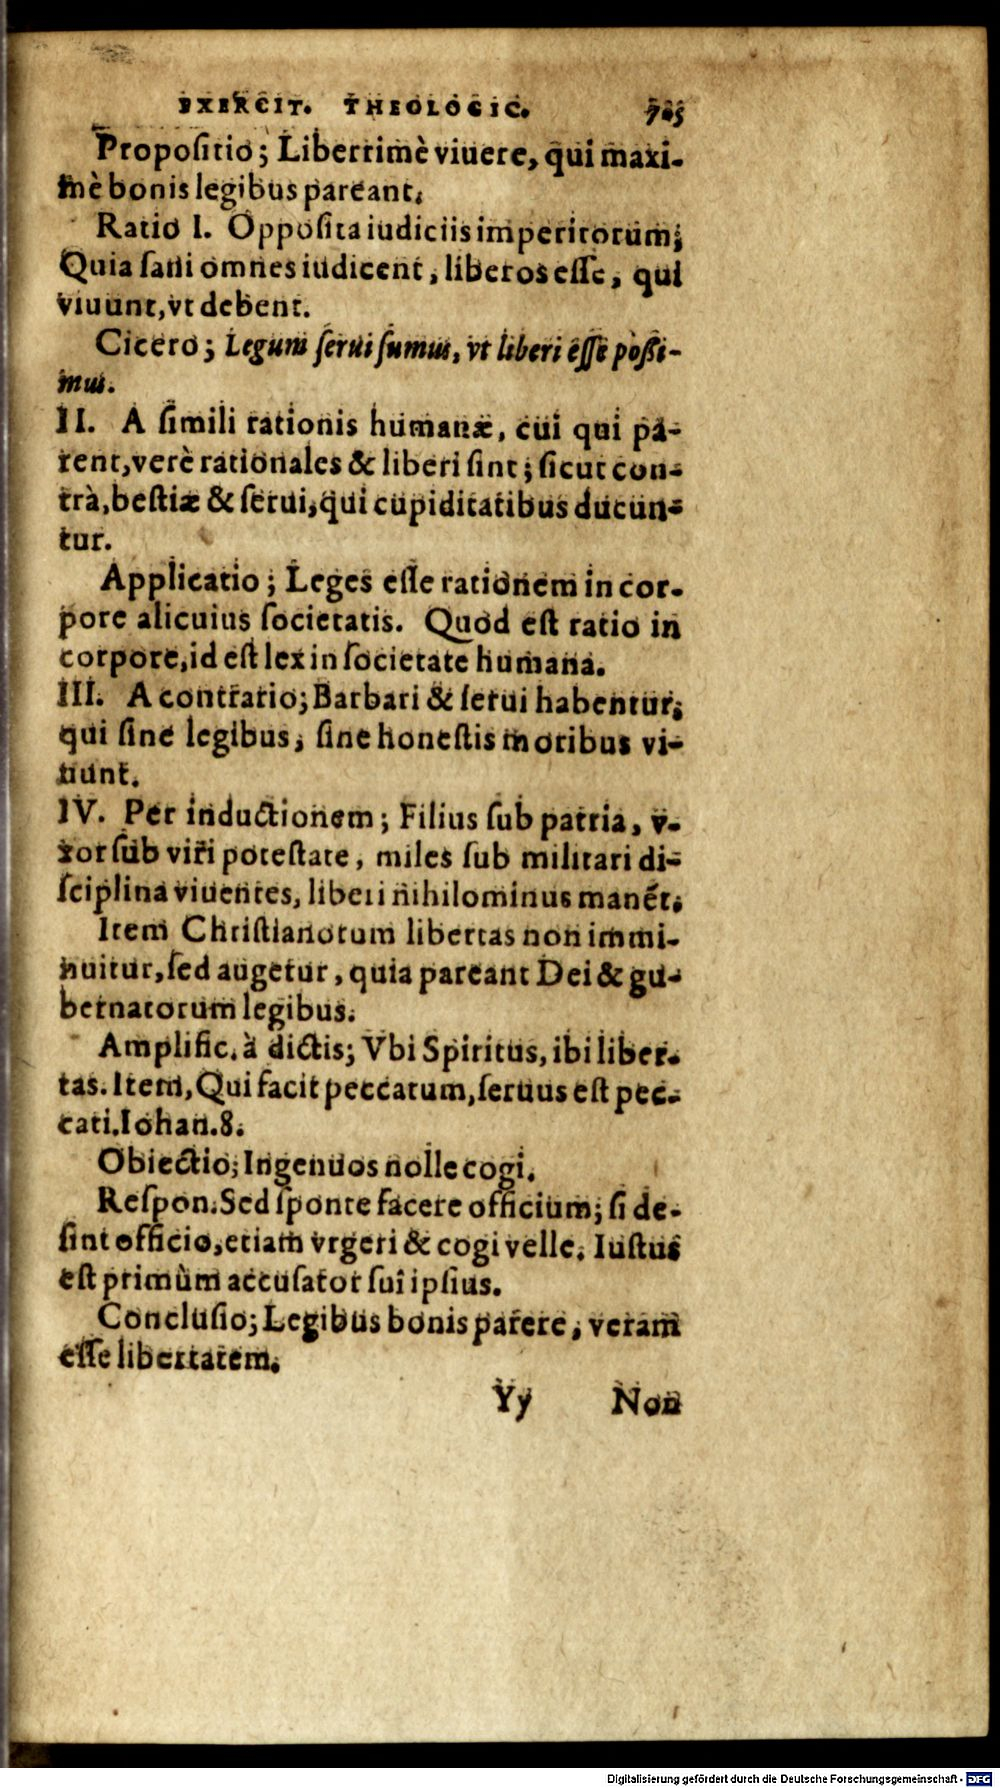 EXERCIT. THEOLOGIC. 705
Propoſitio; Liberrimè viuere, qui maxi-
mè bonis legibus pareant.
Ratio I. Oppoſita iudiciis imperitorum;
Quia ſani omnes iudicent, liberos eſſe, qui
viuunt, vt debent.
Cicero; Legum ſerui ſumus, vt liberi eſſe poßi-
mus.
II. A ſimili rationis humanæ, cui qui pa-
rent, verè rationales & liberi ſint; ſicut con-
trà, beſtiæ & ſerui, qui cupiditatibus ducun-
tur.
Applicatio; Leges eſſe rationem in cor-
pore alicuius ſocietatis. Quod eſt ratio in
corpore, id eſt lex in ſocietate humana.
III. A contrario; Barbari & ſerui habentur,
qui ſine legibus, ſine honeſtis moribus vi-
uunt.
IV. Per inductionem; Filius ſub patria, v-
xor ſub viri poteſtate, miles ſub militari di-
ſciplina viuentes, liberi nihilominus manẽt.
Item Chriſtianorum libertas non immi-
nuitur, ſed augetur, quia pareant Dei & gu-
bernatorum legibus.
Amplific. à dictis; Vbi Spiritus, ibi liber-
tas. Item, Qui facit peccatum, ſeruus eſt pec-
cati. Iohan. 8.
Obiectio; Ingenuos nolle cogi.
Reſpon. Sed ſponte facere officium; ſi de-
ſint officio, etiam vrgeri & cogi velle. Iuſtus
eſt primùm accuſator ſui ipſius.
Concluſio; Legibus bonis parere, veram
eſſe libertatem.
Yy Non
Digitalisierung gefördert durch die Deutsche Forschungsgemeinschaft - DFG